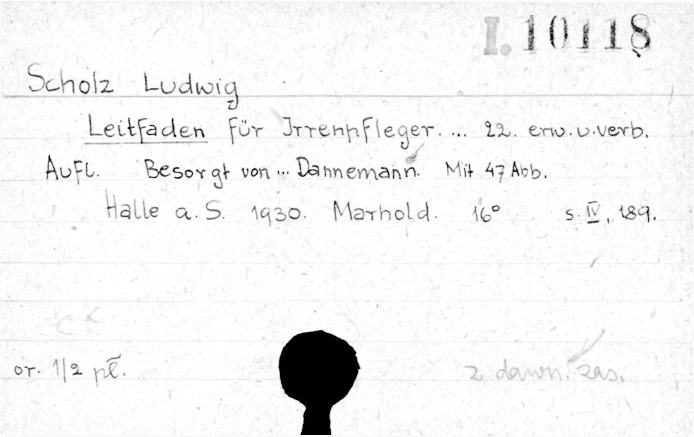 I. 10118
Scholz Ludwig
Leitfaden für Irrenpfleger. ... 22. erw. u. verb.
Aufl. Besorgt von ... Dannemann. Mit 47 Abb.
Halle a. S. 1930. Marhold. 16° s. IV, 189.
or. 1/2 pł.
z dawn. zas.